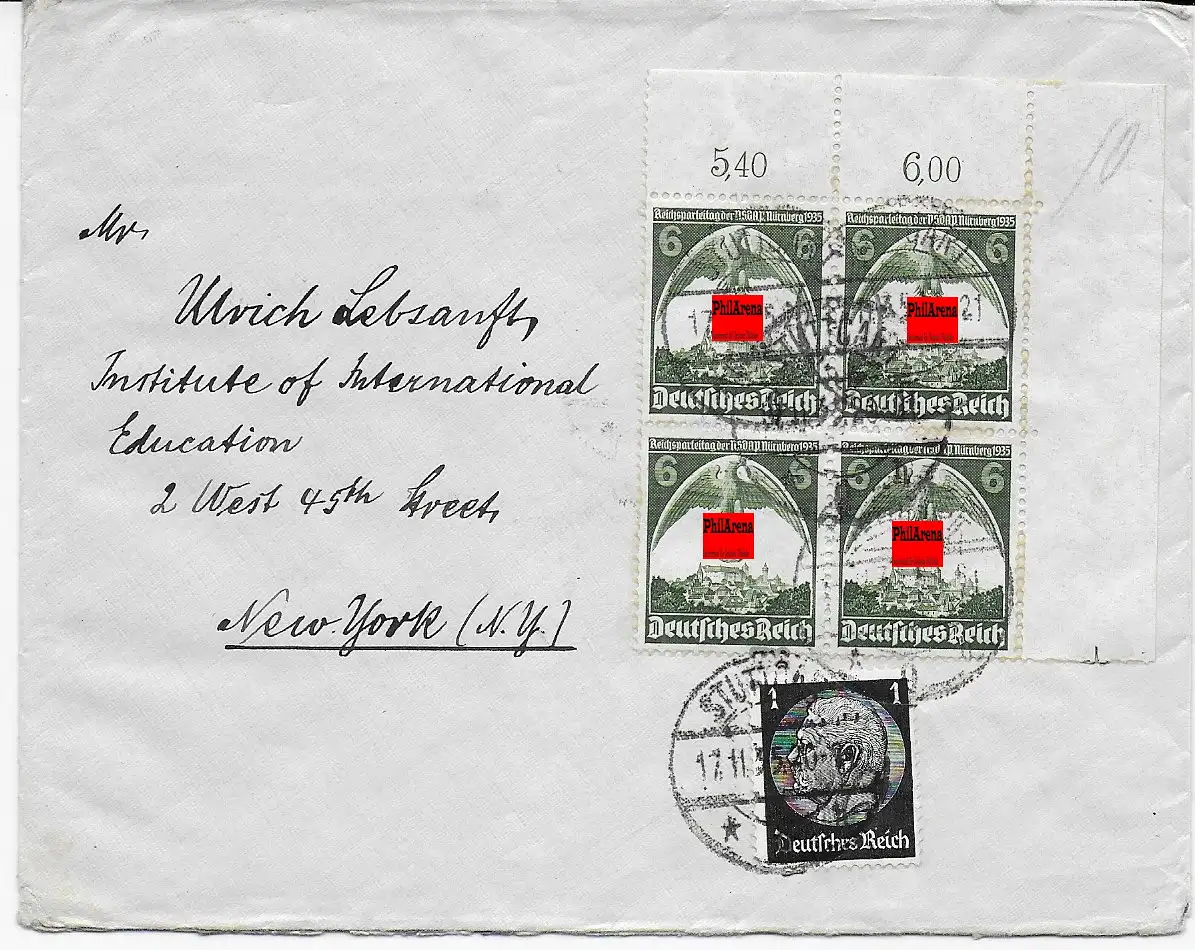 5,40
6,00
10
Mr.
Ulrich Lebsanft,
Institute of International
Education
2 West 45th Street,
New York (N.Y.)
Reichsparteitag der NSDAP. Nürnberg 1935
6 6
PhilArena
Deutsches Reich
Reichsparteitag der NSDAP. Nürnberg 1935
6 6
PhilArena
21
Deutsches Reich
Reichsparteitag der NSDAP. Nürnberg 1935
6 6
PhilArena
Deutsches Reich
Reichsparteitag der NSDAP. Nürnberg 1935
6
PhilArena
Deutsches Reich
1 1
17.11.
Deutsches Reich